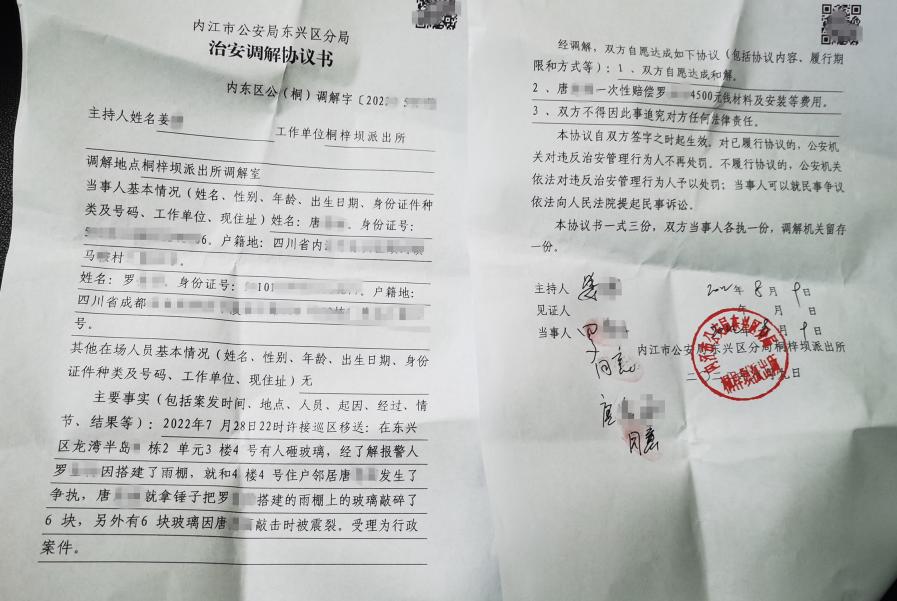 内江市公安局东兴区分局
治安调解协议书
内东区公(桐)调解字〔202
主持人姓名姜 工作单位桐梓坝派出所
调解地点桐梓坝派出所调解室
当事人基本情况(姓名、性别、年龄、出生日期、身份证件种
类及号码、工作单位、现住址)姓名:唐 身份证号:
5 6. 户籍地:四川省内
马 村
姓名:罗 身份证号: 101 户籍地:
四川省成都
号。
其他在场人员基本情况(姓名、性别、年龄、出生日期、身份
证件种类及号码、工作单位、现住址)无
主要事实(包括案发时间、地点、人员、起因、经过、情
节、结果等):2022年7月28日22时许接巡区移送:在东兴
区龙湾半岛 栋2单元3楼4号有人砸玻璃,经了解报警人
罗 因搭建了雨棚,就和4楼4号住户邻居唐 发生了
争执,唐 就拿锤子把罗 搭建的雨棚上的玻璃敲碎了
6块,另外有6块玻璃因唐 敲击时被震裂。受理为行政
案件。
经调解,双方自愿达成如下协议(包括协议内容、履行期
限和方式等):1、双方自愿达成和解。
2、唐 一次性赔偿罗 4500元钱材料及安装等费用。
3、双方不得因此事追究对方任何法律责任。
本协议自双方签字之时起生效。对已履行协议的,公安机
关对违反治安管理行为人不再处罚。不履行协议的,公安机关
依法对违反治安管理行为人予以处罚;当事人可以就民事争议
依法向人民法院提起民事诉讼。
本协议书一式三份,双方当事人各执一份,调解机关留存
一份。
主持人 姜 2022年8月9日
见证人 年 月 日
当事人 罗 月9日
内江市公安局东兴区分局桐梓坝派出所
同意
二〇二 九日
唐
同意